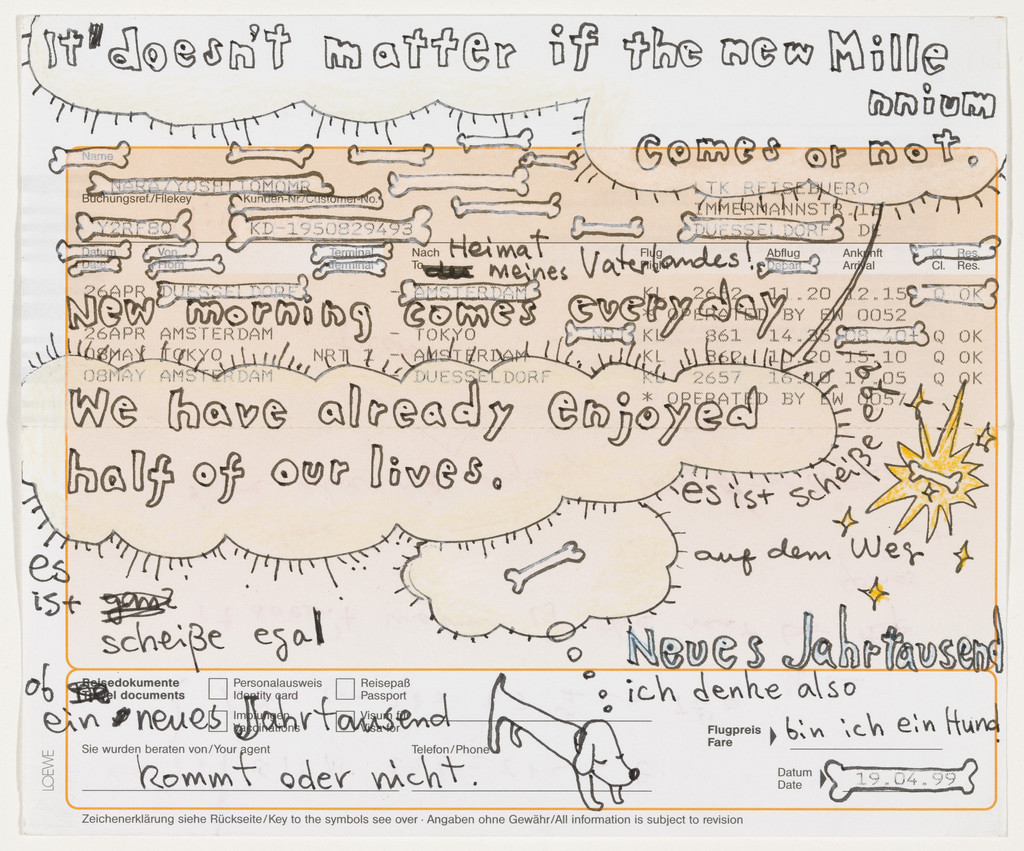 It doesn't matter if the new Mille
nnium
comes or not.
Name
NARA/YOSHITOMOMR
Buchungsref./Filekey
Kunden-Nr./Customer-No.
TK REISEBUERO
IMMERMANNSTR.
Y2RF8Q
KD-1950829493
DUESSELDORF
Datum
Date
Von
From
Terminal
Terminal
Nach
To
Heimat
meines Vaterlandes!
Flug
Flight
Abflug
Depart
Ankunft
Arrival
Kl. Res.
Cl. Res.
26APR DUESSELDORF - AMSTERDAM KL 2652 11.20 12.15 Q OK
New morning comes everyday
* OPERATED BY EW 0052
26APR AMSTERDAM - TOKYO KL 861 14.25 Q OK
08MAY TOKYO NRT - AMSTERDAM KL 862 15.10 Q OK
08MAY AMSTERDAM - DUESSELDORF KL 2657 17.05 Q OK
* OPERATED BY EW 0057
We have already enjoyed
half of our lives.
es ist scheiße egal
auf dem Weg
es
ist ganz
scheiße egal
Neues Jahrtausend
ob
Reisedokumente
Travel documents
Personalausweis
Identity card
Reisepaß
Passport
ich denke also
ein neues Jahrtausend
Impfungen
Vaccinations
Visum für
Visa for
Flugpreis
Fare
bin ich ein Hund
Sie wurden beraten von/Your agent
Telefon/Phone
kommt oder nicht.
Datum
Date
19.04.99
LOEWE
Zeichenerklärung siehe Rückseite/Key to the symbols see over · Angaben ohne Gewähr/All information is subject to revision